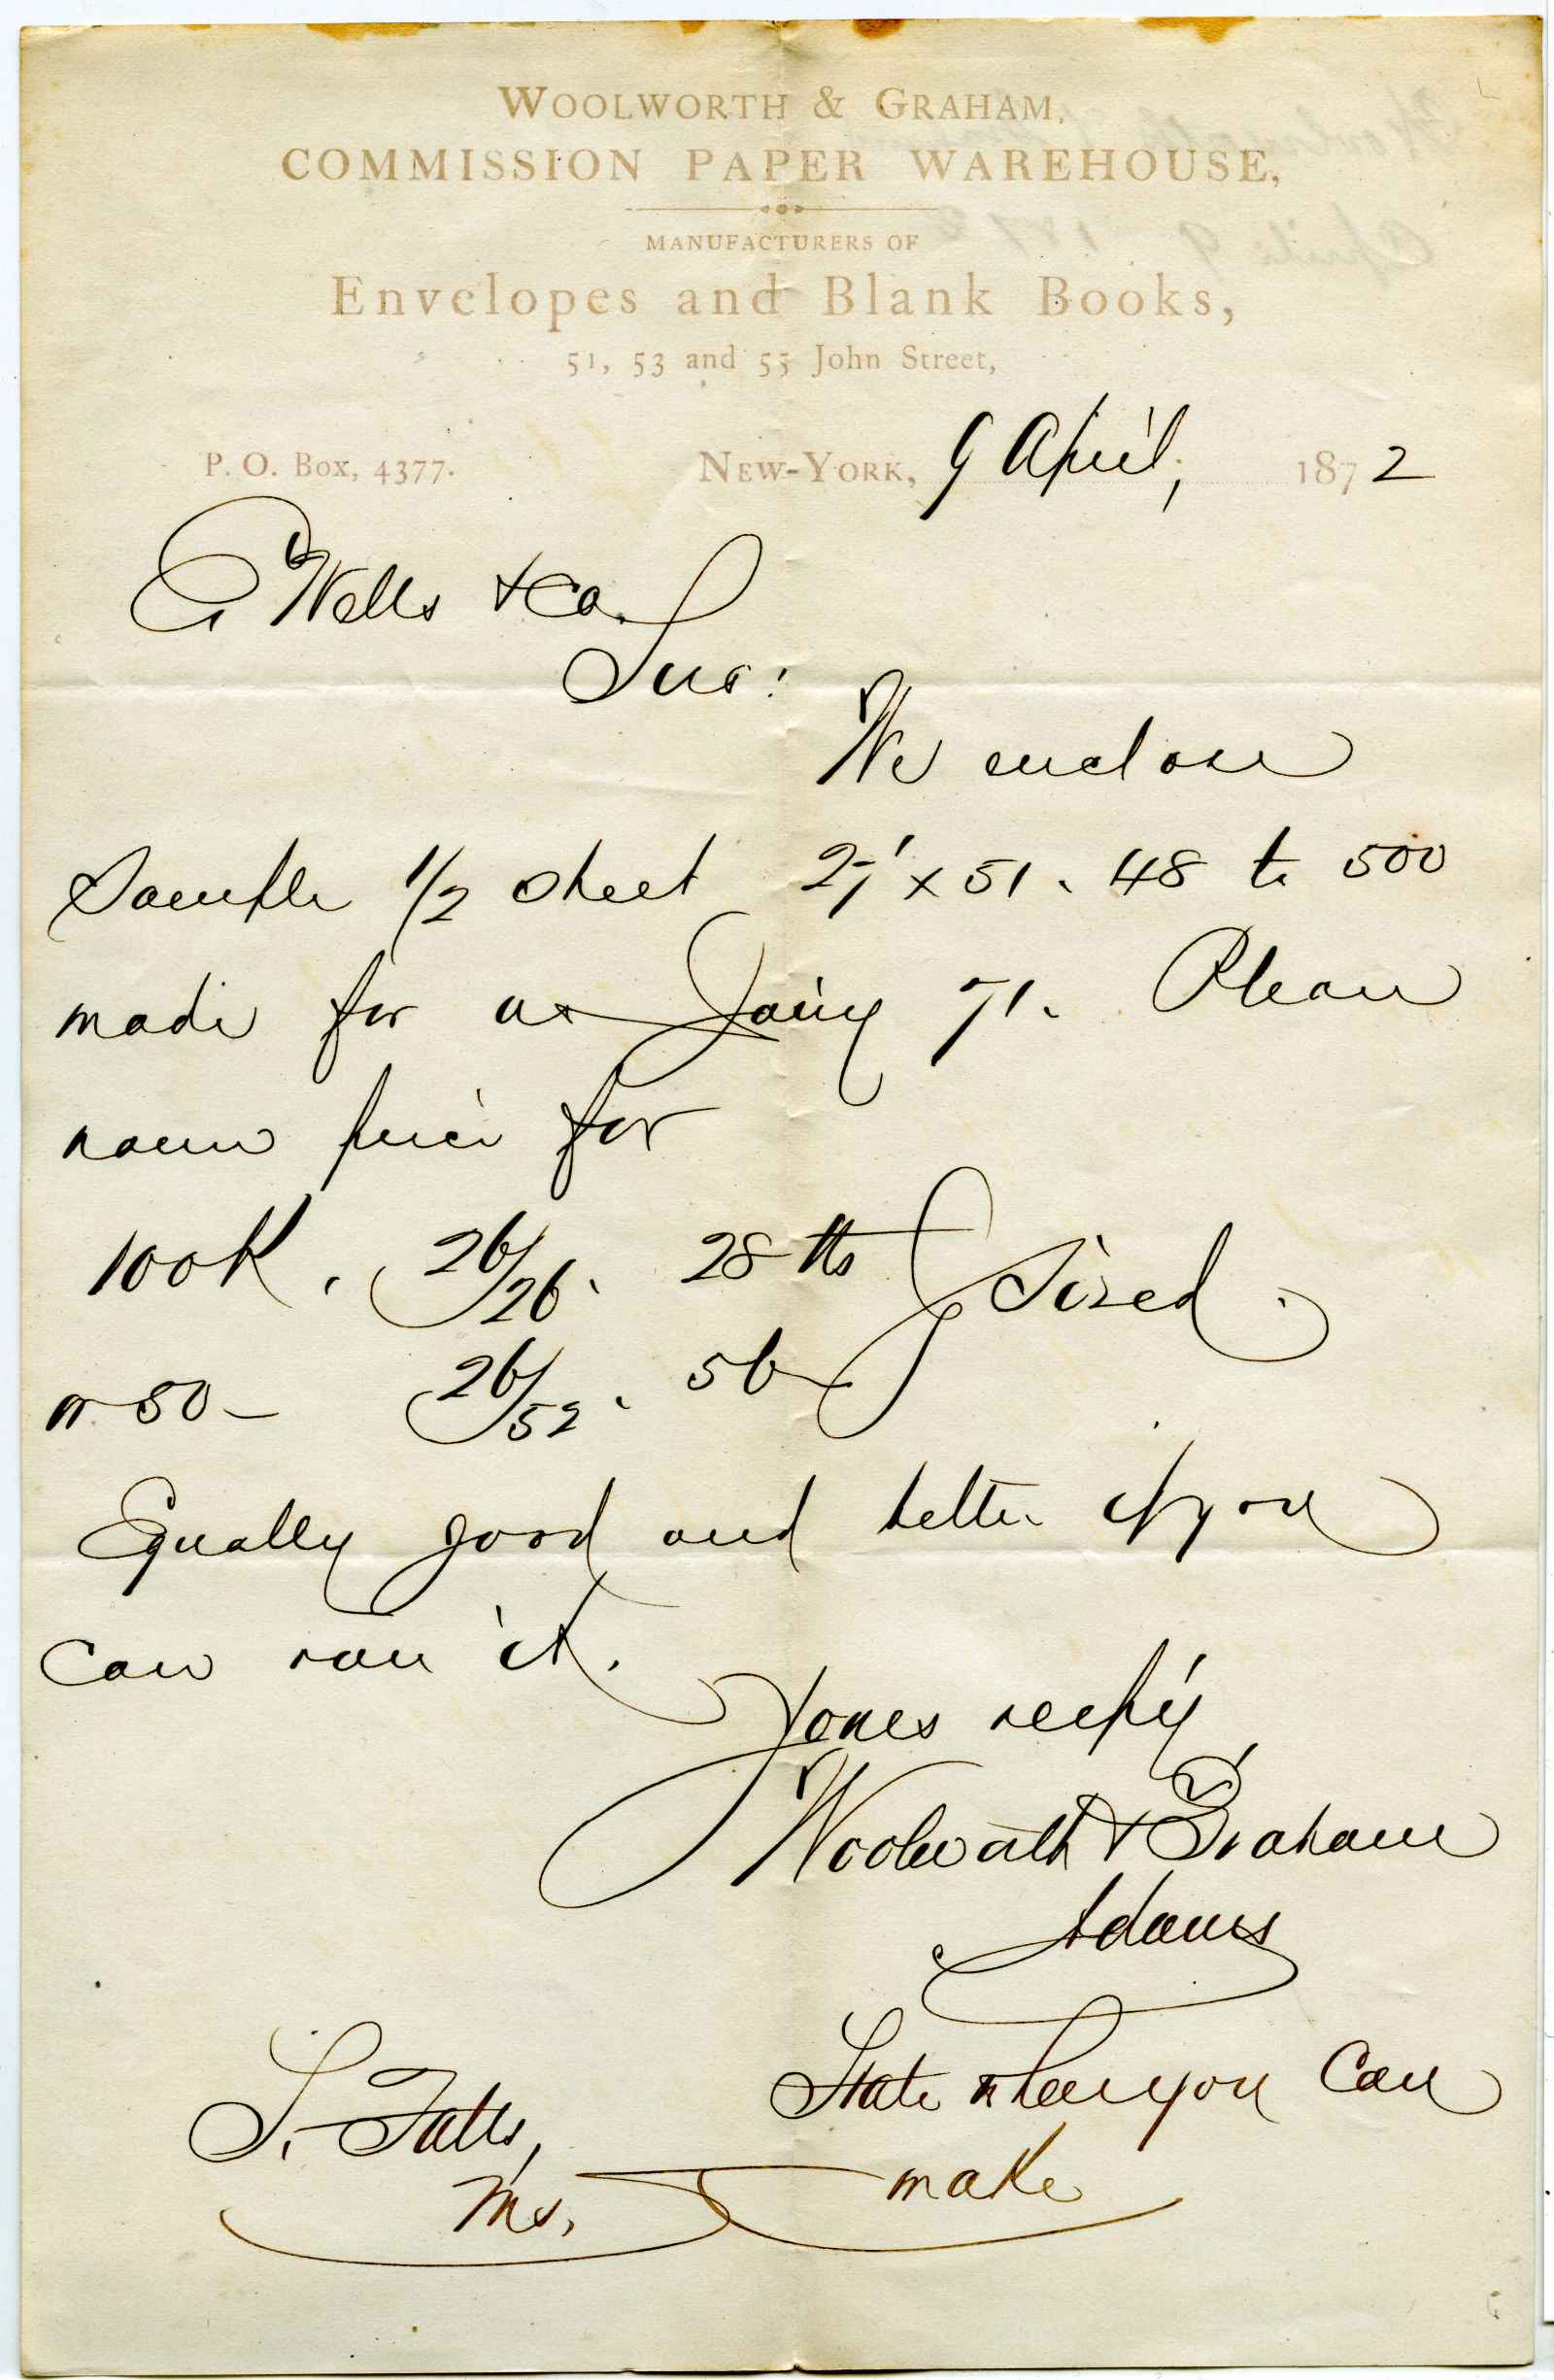 WOOLWORTH & GRAHAM,
COMMISSION PAPER WAREHOUSE,
MANUFACTURERS OF
Envelopes and Blank Books,
51, 53 and 55 John Street,
P. O. Box, 4377. NEW-YORK, 9 April, 1872
Wells & Co.
Sirs:
We enclose
Sample 1/2 sheet x 51. 48 to 500
made for us Jany 71. Please
name price for
100 R. 26/26. 28 lbs Sized.
or 50 - 26/52. 56
Equally good and better if you
can run it.
Yours respy
Woolworth & Graham
Adams
S. Falls, State when you can
Ms. make